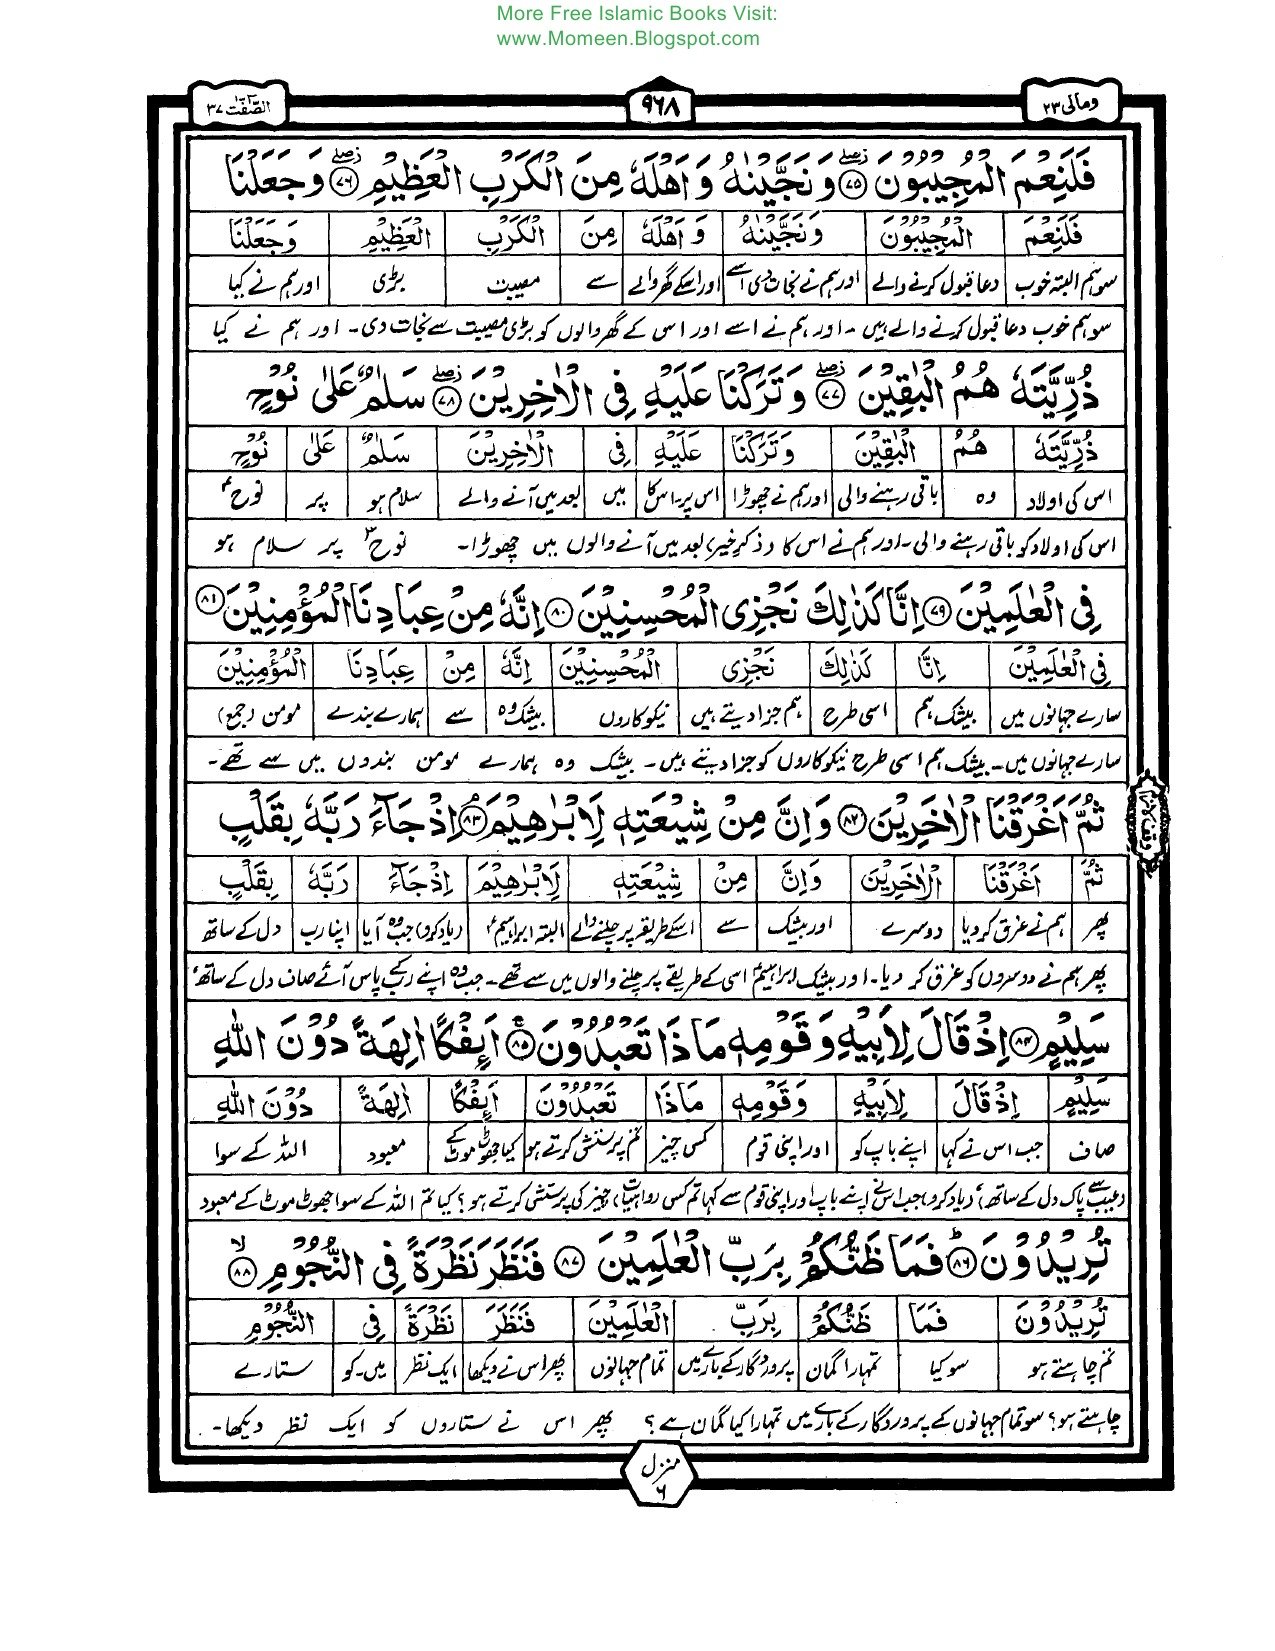 More Free Islamic Books Visit:
www.Momeen.Blogspot.com
ومالی ۲۳
۹۶۸
الصّٰٓفّٰت ۳۷
فَلَنِعْمَ الْمُجِیْبُوْنَ ۷۵ وَ نَجَّیْنٰهُ وَ اَهْلَهٗ مِنَ الْكَرْبِ الْعَظِیْمِ ۷۶ وَ جَعَلْنَا
فَلَنِعْمَ الْمُجِیْبُوْنَ وَ نَجَّیْنٰهُ وَ اَهْلَهٗ مِنَ الْكَرْبِ الْعَظِیْمِ وَ جَعَلْنَا
سو ہم البتہ خوب دعا قبول کرنے والے اور ہم نے نجات دی اسے اور اسکے گھر والے سے مصیبت بڑی اور ہم نے کیا
سو ہم خوب دعا قبول کرنے والے ہیں ۔ اور ہم نے اسے اور اس کے گھر والوں کو بڑی مصیبت سے نجات دی ۔ اور ہم نے کیا
ذُرِّیَّتَهٗ هُمُ الْبٰقِیْنَ ۷۷ وَ تَرَكْنَا عَلَیْهِ فِی الْاٰخِرِیْنَ ۷۸ سَلٰمٌ عَلٰی نُوْحٍ
ذُرِّیَّتَهٗ هُمُ الْبٰقِیْنَ وَ تَرَكْنَا عَلَیْهِ فِی الْاٰخِرِیْنَ سَلٰمٌ عَلٰی نُوْحٍ
اس کی اولاد وہ باقی رہنے والی اور ہم نے چھوڑا اس پر۔اس کا میں بعد میں آنے والے سلام ہو پر نوحؑ
اس کی اولاد کو باقی رہنے والی ۔ اور ہم نے اس کا (ذکرِ خیر) بعد میں آنے والوں میں چھوڑا ۔ نوحؑ پر سلام ہو
فِی الْعٰلَمِیْنَ ۷۹ اِنَّا كَذٰلِكَ نَجْزِی الْمُحْسِنِیْنَ ۸۰ اِنَّهٗ مِنْ عِبَادِنَا الْمُؤْمِنِیْنَ ۸۱
فِی الْعٰلَمِیْنَ اِنَّا كَذٰلِكَ نَجْزِی الْمُحْسِنِیْنَ اِنَّهٗ مِنْ عِبَادِنَا الْمُؤْمِنِیْنَ
سارے جہانوں میں بیشک ہم اسی طرح ہم جزا دیتے ہیں نیکوکاروں بیشک وہ سے ہمارے بندے مومن (جمع)
سارے جہانوں میں ۔ بیشک ہم اسی طرح نیکوکاروں کو جزا دیتے ہیں ۔ بیشک وہ ہمارے مومن بندوں میں سے تھے ۔
ثُمَّ اَغْرَقْنَا الْاٰخَرِیْنَ ۸۲ وَ اِنَّ مِنْ شِیْعَتِهٖ لَاِبْرٰهِیْمَ ۸۳ اِذْ جَآءَ رَبَّهٗ بِقَلْبٍ
ثُمَّ اَغْرَقْنَا الْاٰخَرِیْنَ وَ اِنَّ مِنْ شِیْعَتِهٖ لَاِبْرٰهِیْمَ اِذْ جَآءَ رَبَّهٗ بِقَلْبٍ
پھر ہم نے غرق کر دیا دوسرے اور بیشک سے اسکے طریقہ پر چلنے والے البتہ ابراہیمؑ (یاد کرو) جب وہ آیا اپنا رب دل کے ساتھ
پھر ہم نے دوسروں کو غرق کر دیا ۔ اور بیشک ابراہیمؑ اسی کے طریقے پر چلنے والوں میں سے تھے ۔ جب وہ اپنے رب کے پاس آئے صاف دل کے ساتھ
سَلِیْمٍ ۸۴ اِذْ قَالَ لِاَبِیْهِ وَ قَوْمِهٖ مَا ذَا تَعْبُدُوْنَ ۸۵ اَىِٕفْكًا اٰلِهَةً دُوْنَ اللّٰهِ
سَلِیْمٍ اِذْ قَالَ لِاَبِیْهِ وَ قَوْمِهٖ مَا ذَا تَعْبُدُوْنَ اَىِٕفْكًا اٰلِهَةً دُوْنَ اللّٰهِ
صاف جب اس نے کہا اپنے باپ کو اور اپنی قوم کس چیز تم پرستش کرتے ہو کیا جھوٹ موٹ کے معبود اللہ کے سوا
(عیب سے) پاک دل کے ساتھ، (یاد کرو) جب اس نے اپنے باپ اور اپنی قوم سے کہا تم کس (واہیات) چیز کی پرستش کرتے ہو ؟ کیا تم اللہ کے سوا جھوٹ موٹ کے معبود
تُرِیْدُوْنَ ۸۶ فَمَا ظَنُّكُمْ بِرَبِّ الْعٰلَمِیْنَ ۸۷ فَنَظَرَ نَظْرَةً فِی النُّجُوْمِ ۸۸
تُرِیْدُوْنَ فَمَا ظَنُّكُمْ بِرَبِّ الْعٰلَمِیْنَ فَنَظَرَ نَظْرَةً فِی النُّجُوْمِ
تم چاہتے ہو سو کیا تمہارا گمان پروردگار کے بارے میں تمام جہانوں پھر اس نے دیکھا ایک نظر میں۔کو ستارے
چاہتے ہو ؟ سو تمام جہانوں کے پروردگار کے بارے میں تمہارا کیا گمان ہے ؟ پھر اس نے ستاروں کو ایک نظر دیکھا ۔
منزل ۶